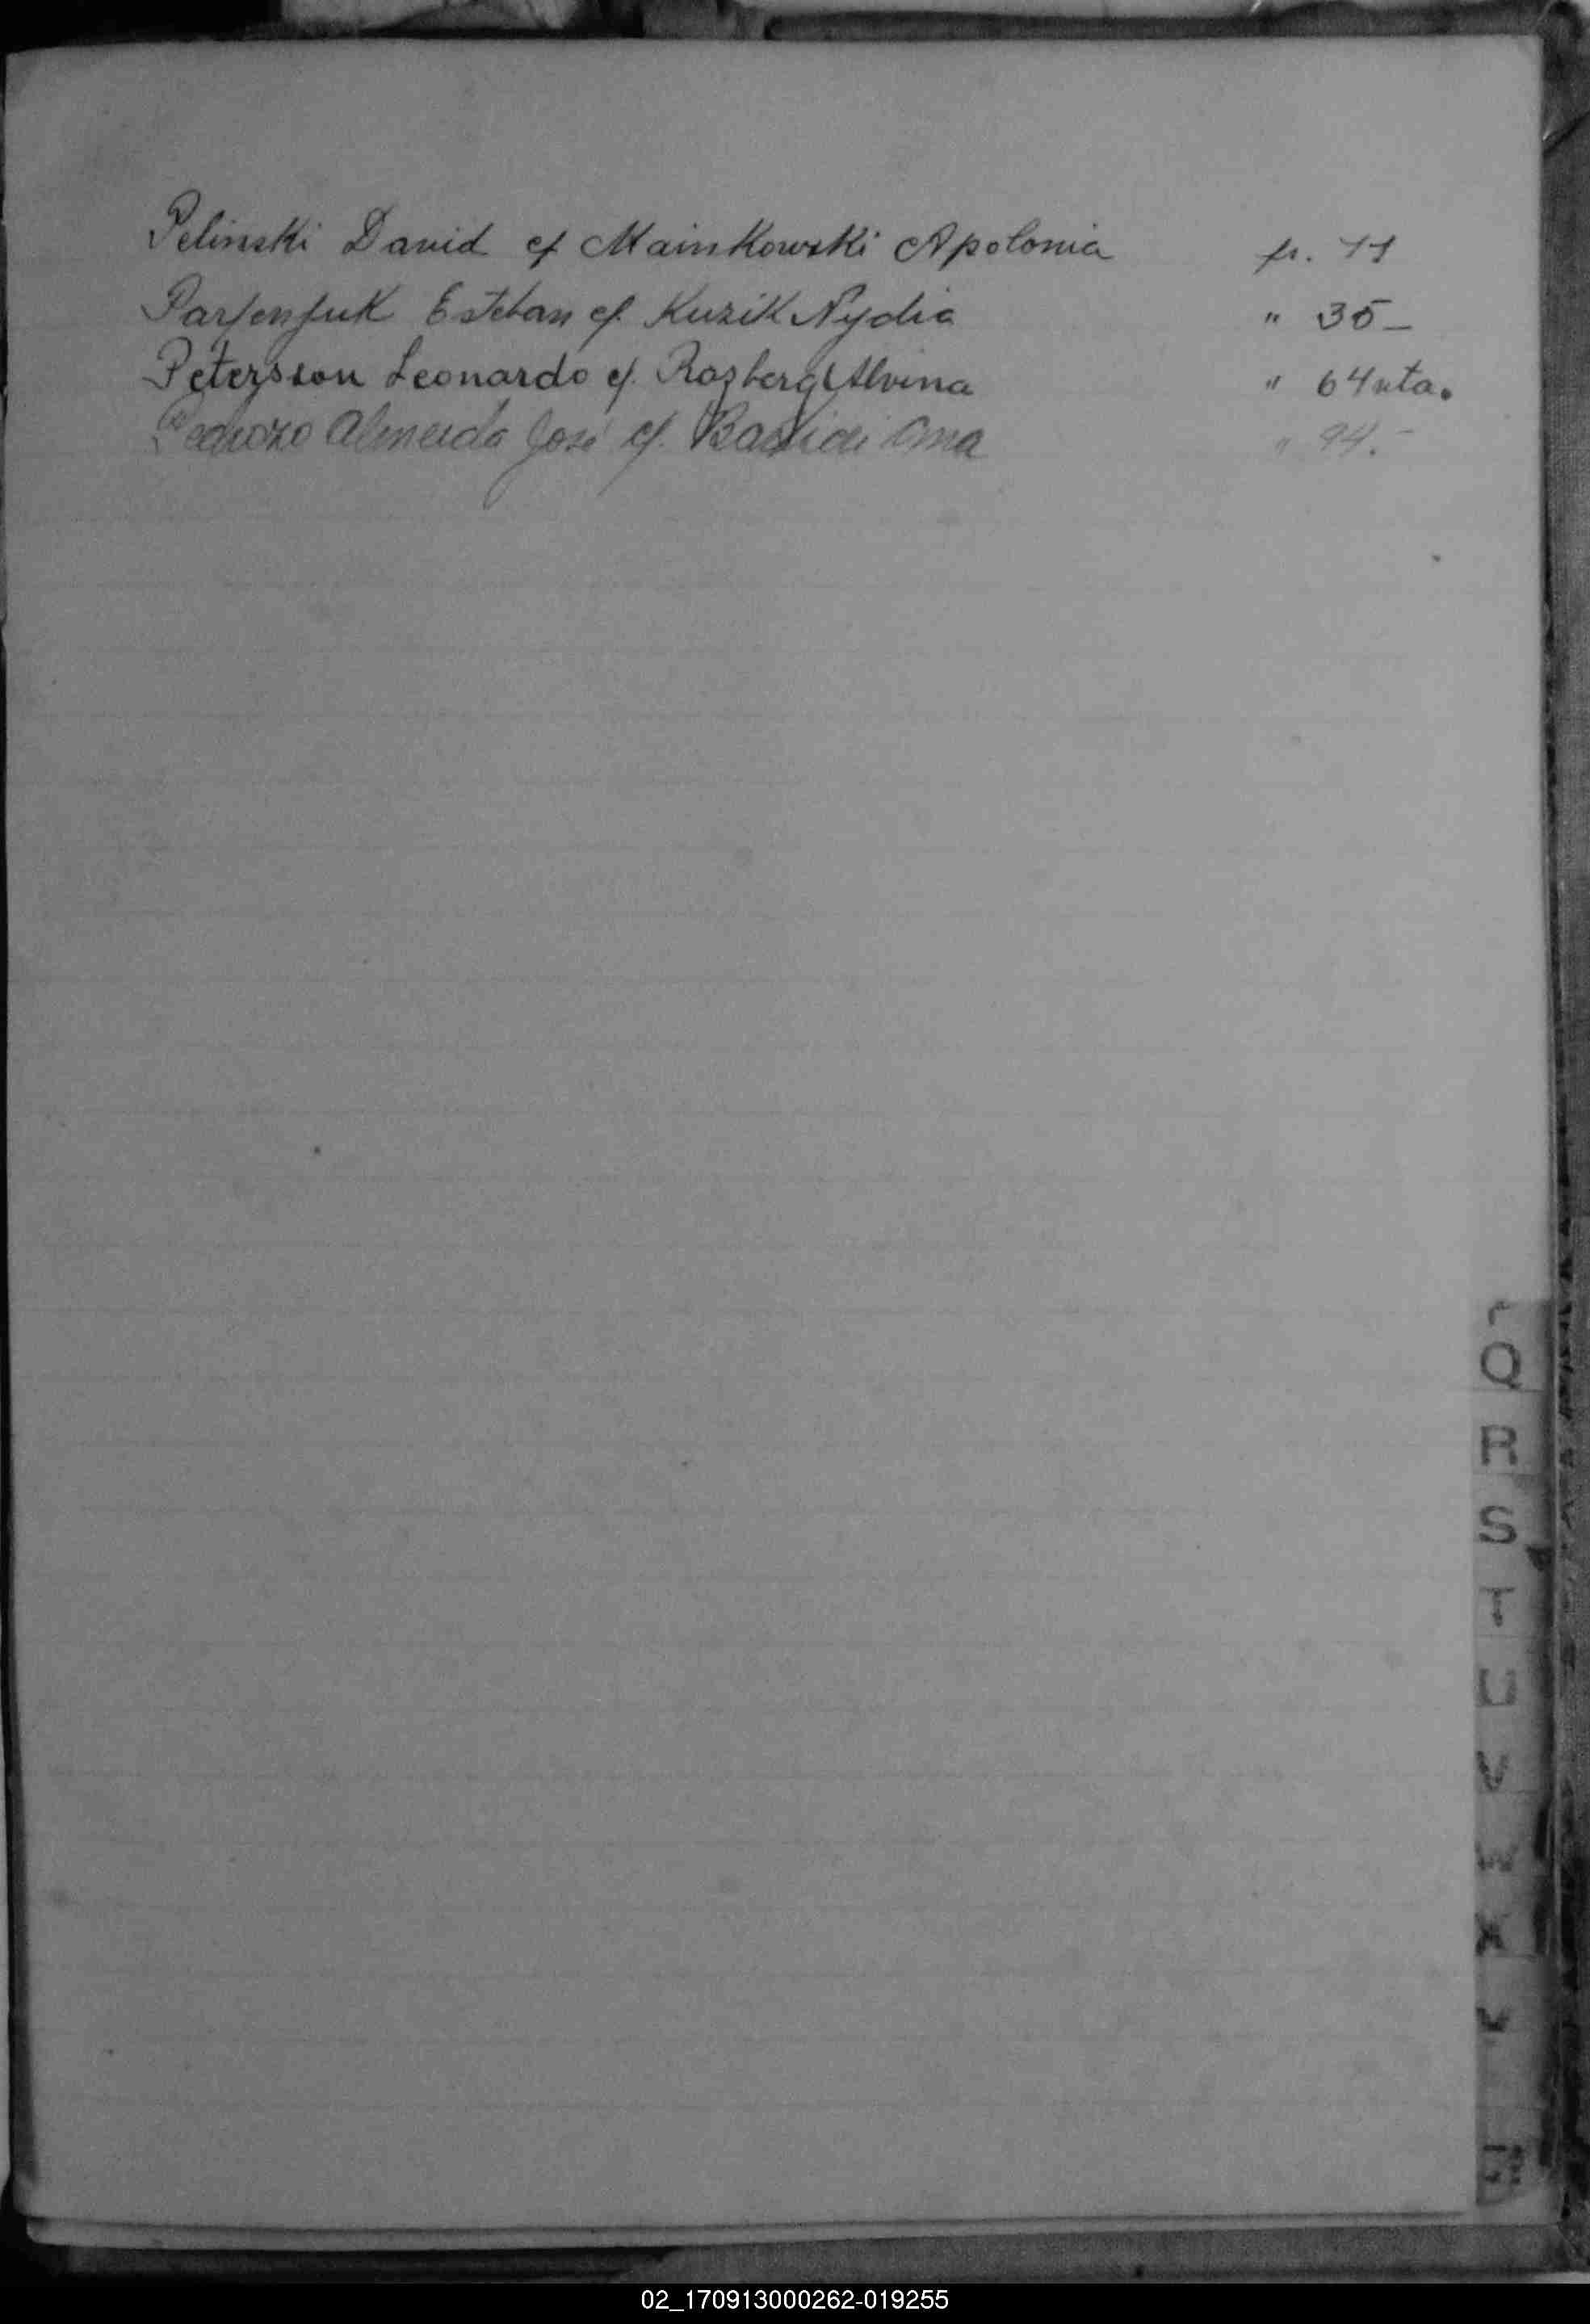 Pelinski David c/ Mainkowski Apolonia fr. 11
Parfenjuk Esteban c/. Kuzik Nydia " 35_
Petersson Leonardo c/. Rozberg Alvina " 64 vta.
Pedrozo Almeida José c/. Ana " 94.-
Q
R
S
T
U
V
W
X
02_170913000262-019255